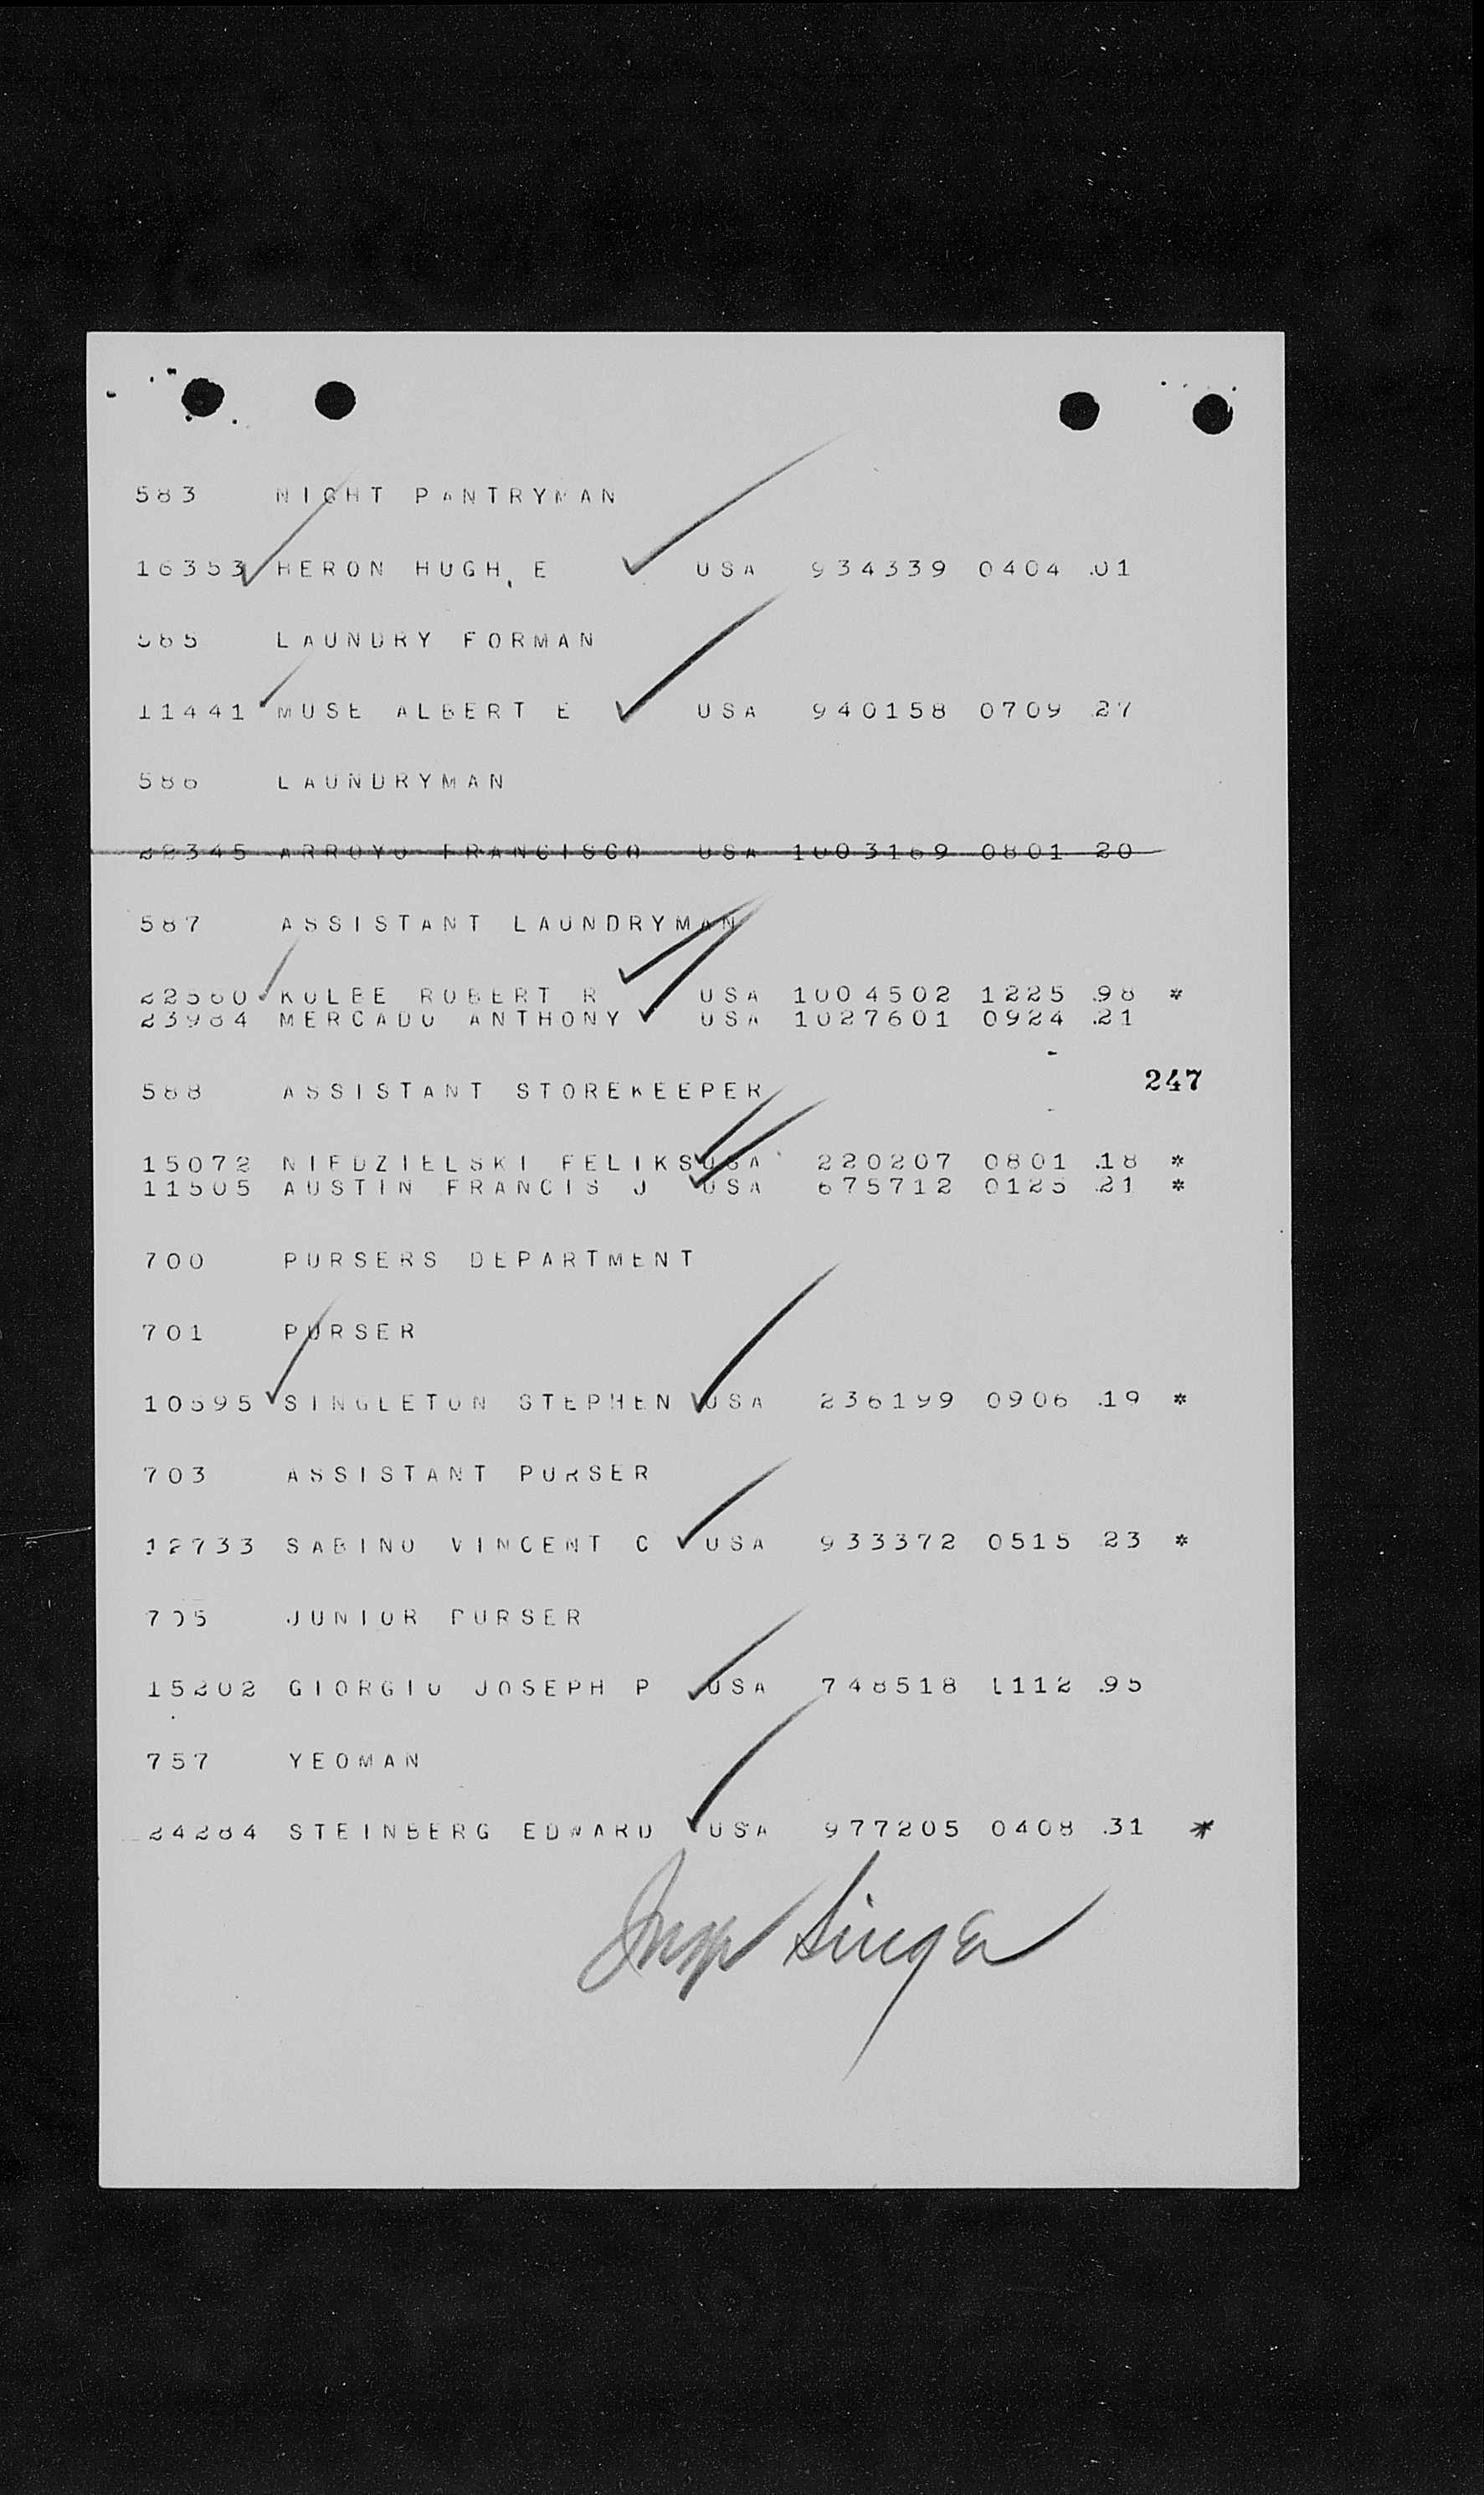 583 NIGHT PANTRYMAN
16353 HERON HUGH E USA 934339 0404 .01
585 LAUNDRY FORMAN
11441 MUSE ALBERT E USA 940158 0709 .27
586 LAUNDRYMAN
22345 ARROYO FRANCISCO USA 1003169 0801 20
587 ASSISTANT LAUNDRYMAN
22560 KOLBE ROBERT R USA 1004502 1225 .98 *
23984 MERCADO ANTHONY USA 1027601 0924 .21
588 ASSISTANT STOREKEEPER
247
15072 NIEDZIELSKI FELIKS USA 220207 0801 .18 *
11505 AUSTIN FRANCIS J USA 675712 0125 .21 *
700 PURSERS DEPARTMENT
701 PURSER
10595 SINGLETON STEPHEN USA 236199 0906 .19 *
703 ASSISTANT PURSER
12733 SABINO VINCENT C USA 933372 0515 23 *
705 JUNIOR PURSER
15202 GIORGIO JOSEPH P USA 748518 1112 .95
757 YEOMAN
24284 STEINBERG EDWARD USA 977205 0408 .31 *